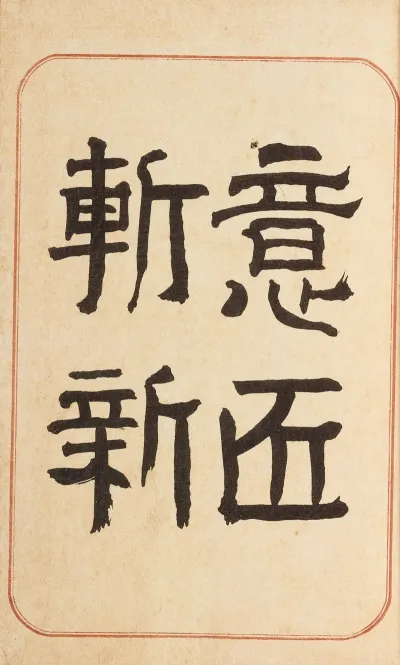 意匠
斬新